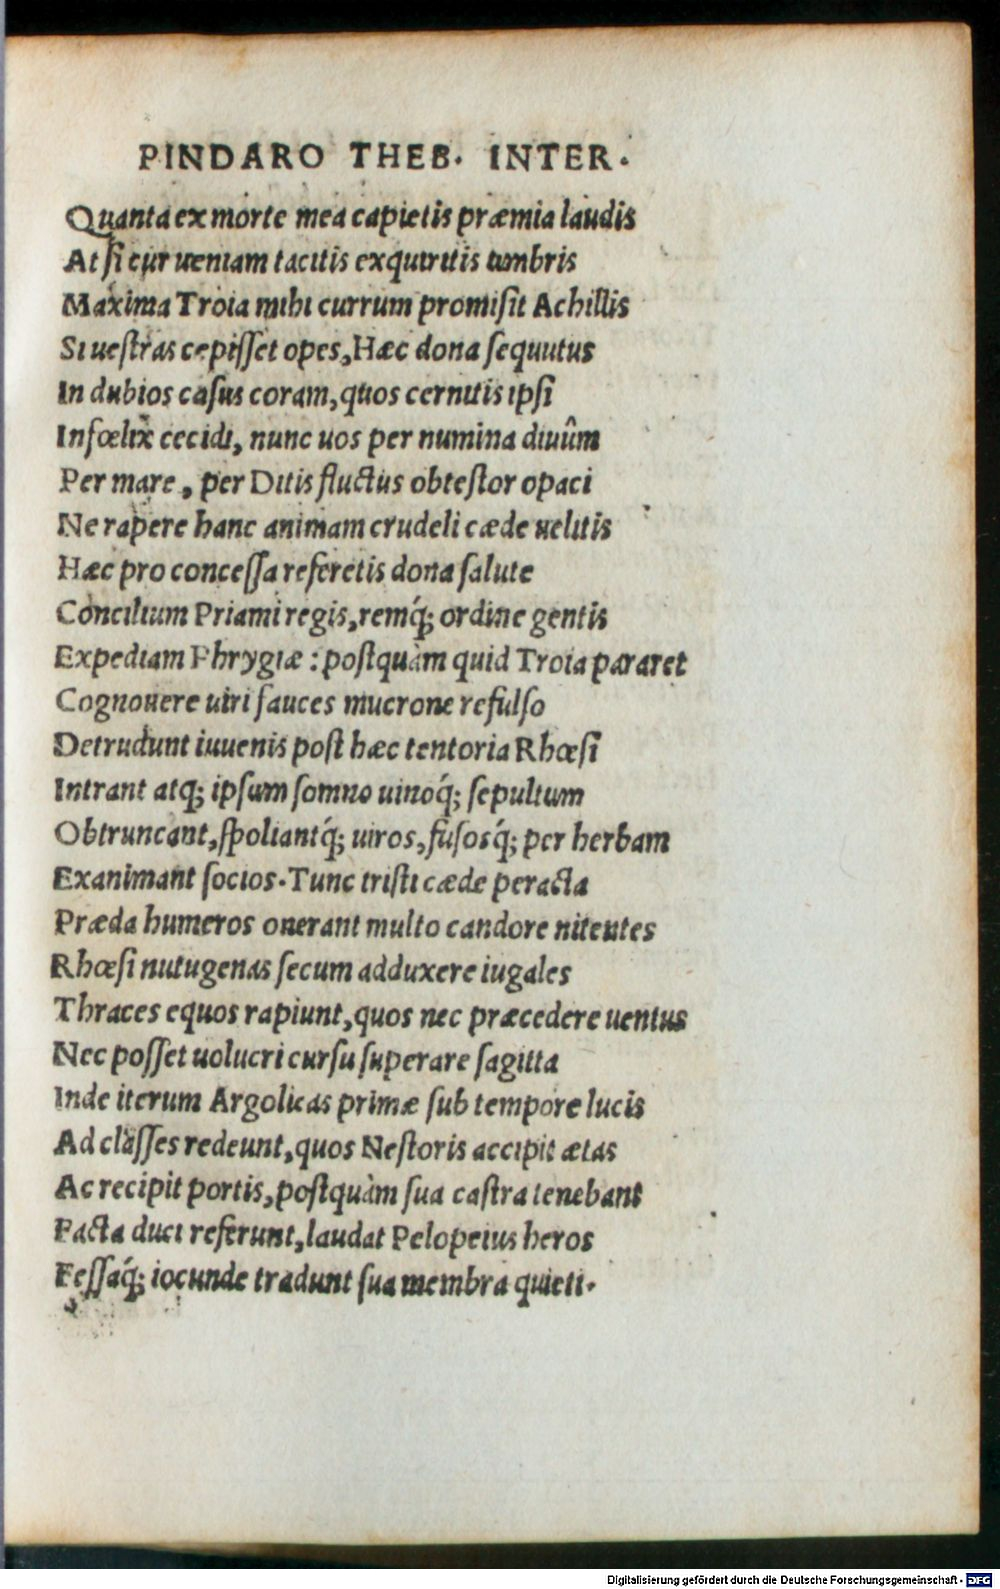 PINDARO THEB. INTER.
Quanta ex morte mea capietis præmia laudis
At ſi cur ueniam tacitis exquiritis umbris
Maxima Troia mihi currum promiſit Achillis
Si ueſtras cepiſſet opes, Hæc dona ſequutus
In dubios caſus coram, quos cernitis ipſi
Infœlix cecidi, nunc uos per numina diuûm
Per mare, per Ditis fluctus obteſtor opaci
Ne rapere hanc animam crudeli cæde uelitis
Hæc pro conceſſa referetis dona ſalute
Concilium Priami regis, remq́; ordine gentis
Expediam Phrygiæ: poſtquàm quid Troia pararet
Cognouere uiri fauces mucrone refulſo
Detrudunt iuuenis poſt hæc tentoria Rhœſi
Intrant atq; ipſum ſomno uinoq́; ſepultum
Obtruncant, ſpoliantq́; uiros, fuſosq́; per herbam
Exanimant ſocios. Tunc triſti cæde peracta
Præda humeros onerant multo candore nitentes
Rhœſi nutugenas ſecum adduxere iugales
Thraces equos rapiunt, quos nec præcedere uentus
Nec poſſet uolucri curſu ſuperare ſagitta
Inde iterum Argolicas primæ ſub tempore lucis
Ad claſſes redeunt, quos Neſtoris accipit ætas
Ac recipit portis, poſtquàm ſua caſtra tenebant
Facta duci referunt, laudat Pelopeius heros
Feſſaq́; iocunde tradunt ſua membra quieti.
Digitalisierung gefördert durch die Deutsche Forschungsgemeinschaft - DFG